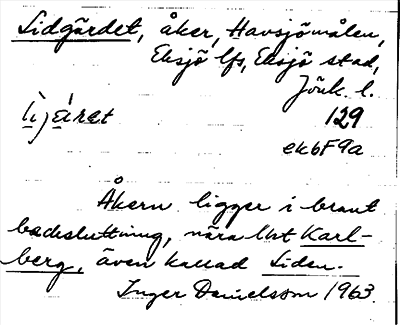 Lidgärdet, åker, Havsjömålen,
Eksjö lfs, Eksjö stad,
Jönk. l.
129
ek6F9a
Åkern ligger i brant
backsluttning, nära lht Karl-
berg, även kallad Liden.
Inger Danielsson 1963.